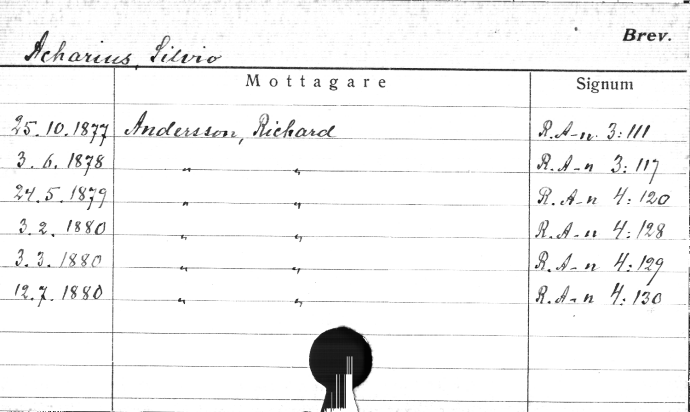 Brev.
Acharius, Silvio
Mottagare Signum
25.10.1877 Andersson, Richard R.A-n. 3:111
3.6.1878 " " R.A-n 3:117
24.5.1879 " " R.A-n 4:120
3.2.1880 " " R.A-n 4:128
3.3.1880 " " R.A-n 4:129
12.7.1880 " " R.A-n 4:130